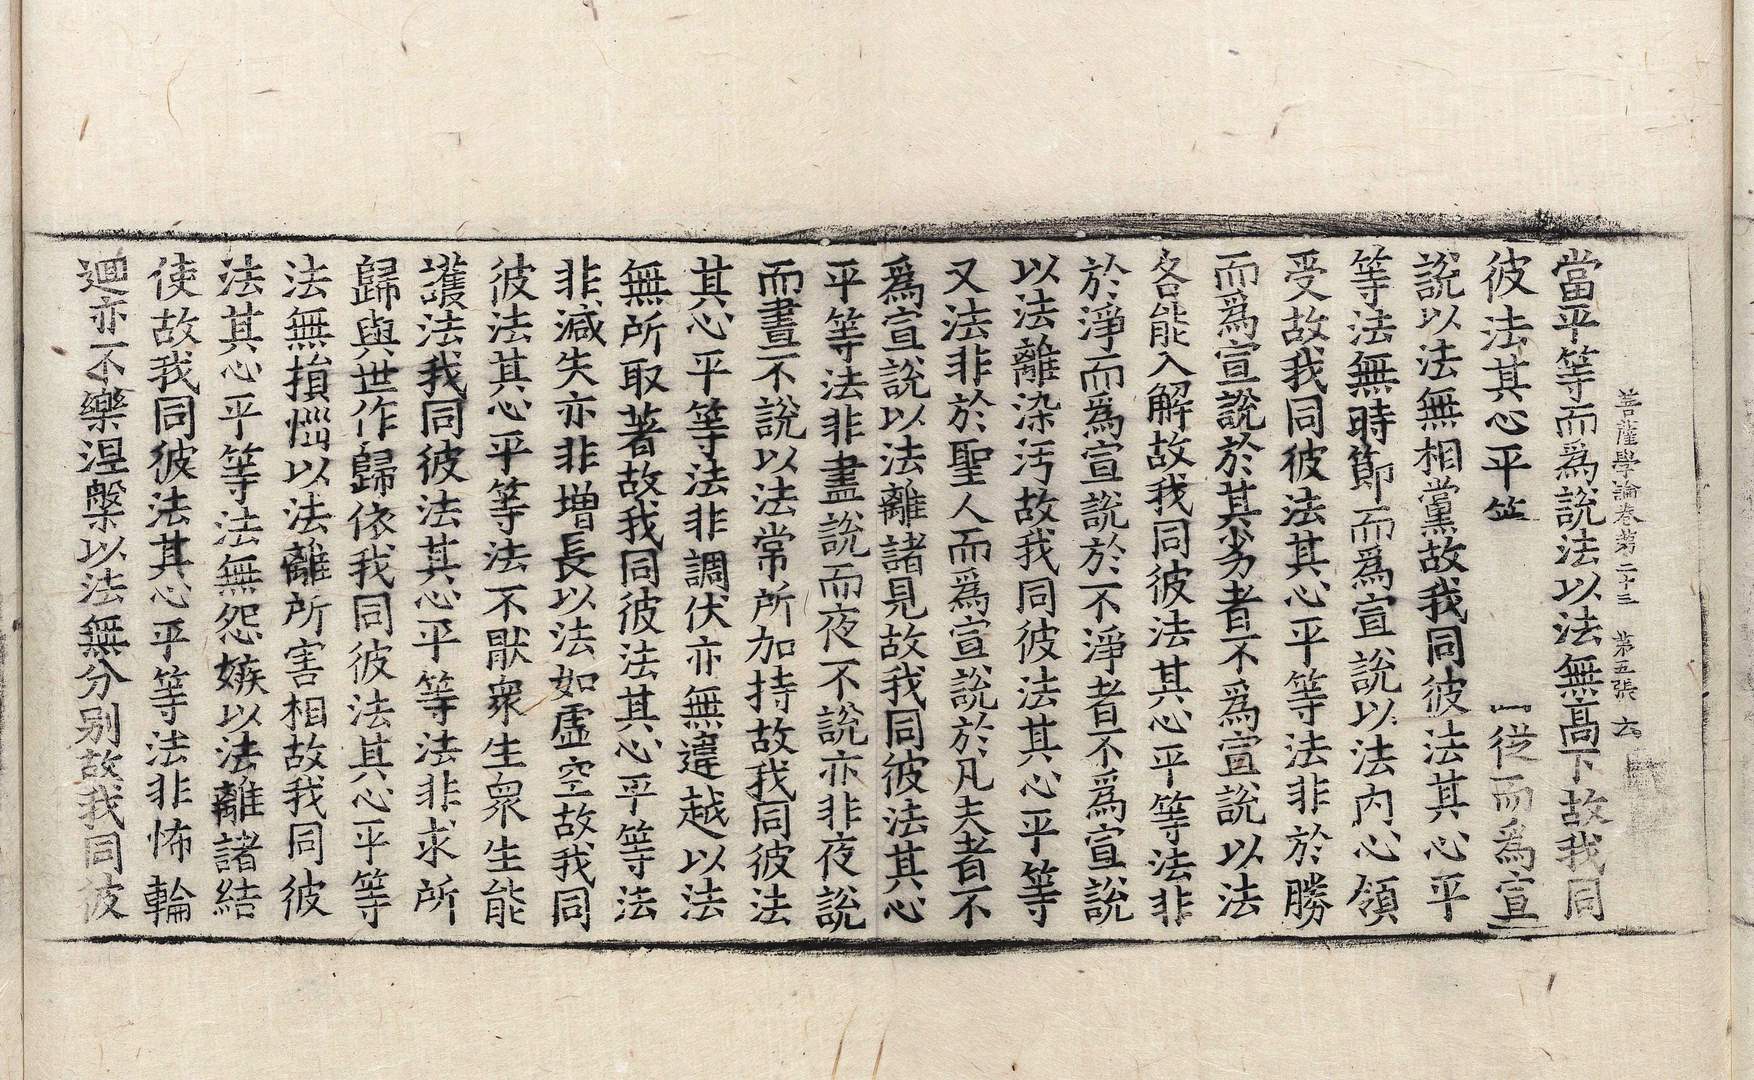 菩薩學論卷第二十三　第五張　亥
當平等而爲說法以法無高下故我同
彼法其心平等　從而爲宣
說以法無相黨故我同彼法其心平
等法無時節而爲宣說以法内心領
受故我同彼法其心平等法非於勝
而爲宣說於其劣者不爲宣說以法
各能入解故我同彼法其心平等法非
於淨而爲宣說於不淨者不爲宣說
以法離染汚故我同彼法其心平等
又法非於聖人而爲宣說於凡夫者不
爲宣說以法離諸見故我同彼法其心
平等法非晝說而夜不說亦非夜說
而晝不說以法常所加持故我同彼法
其心平等法非調伏亦無違越以法
無所取著故我同彼法其心平等法
非減失亦非增長以法如虛空故我同
彼法其心平等法不猒衆生衆生能
護法我同彼法其心平等法非求所
歸與世作歸依我同彼法其心平等
法無損惱以法離所害相故我同彼
法其心平等法無怨嫉以法離諸結
使故我同彼法其心平等法非怖輪
迴亦不樂涅槃以法無分别故我同彼